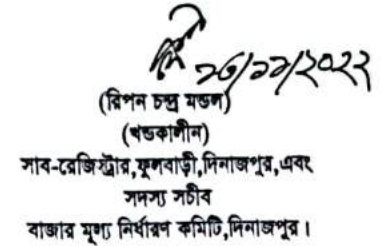 ২৩/১১/২০২২
(রিপন চন্দ্র মন্ডল)
(খন্ডকালীন)
সাব-রেজিস্ট্রার,ফুলবাড়ী,দিনাজপুর,এবং
সদস্য সচীব
বাজার মূল্য নির্ধারণ কমিটি,দিনাজপুর।